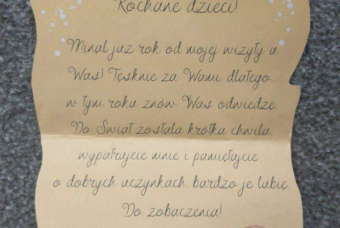 Kochane dzieci!
Minął już rok od mojej wizyty u
Was! Tęsknię za Wami, dlatego
w tym roku znów Was odwiedzę.
Do Świąt została krótka chwila,
wypatrujcie mnie i pamiętajcie
o dobrych uczynkach, bardzo je lubię.
Do zobaczenia!